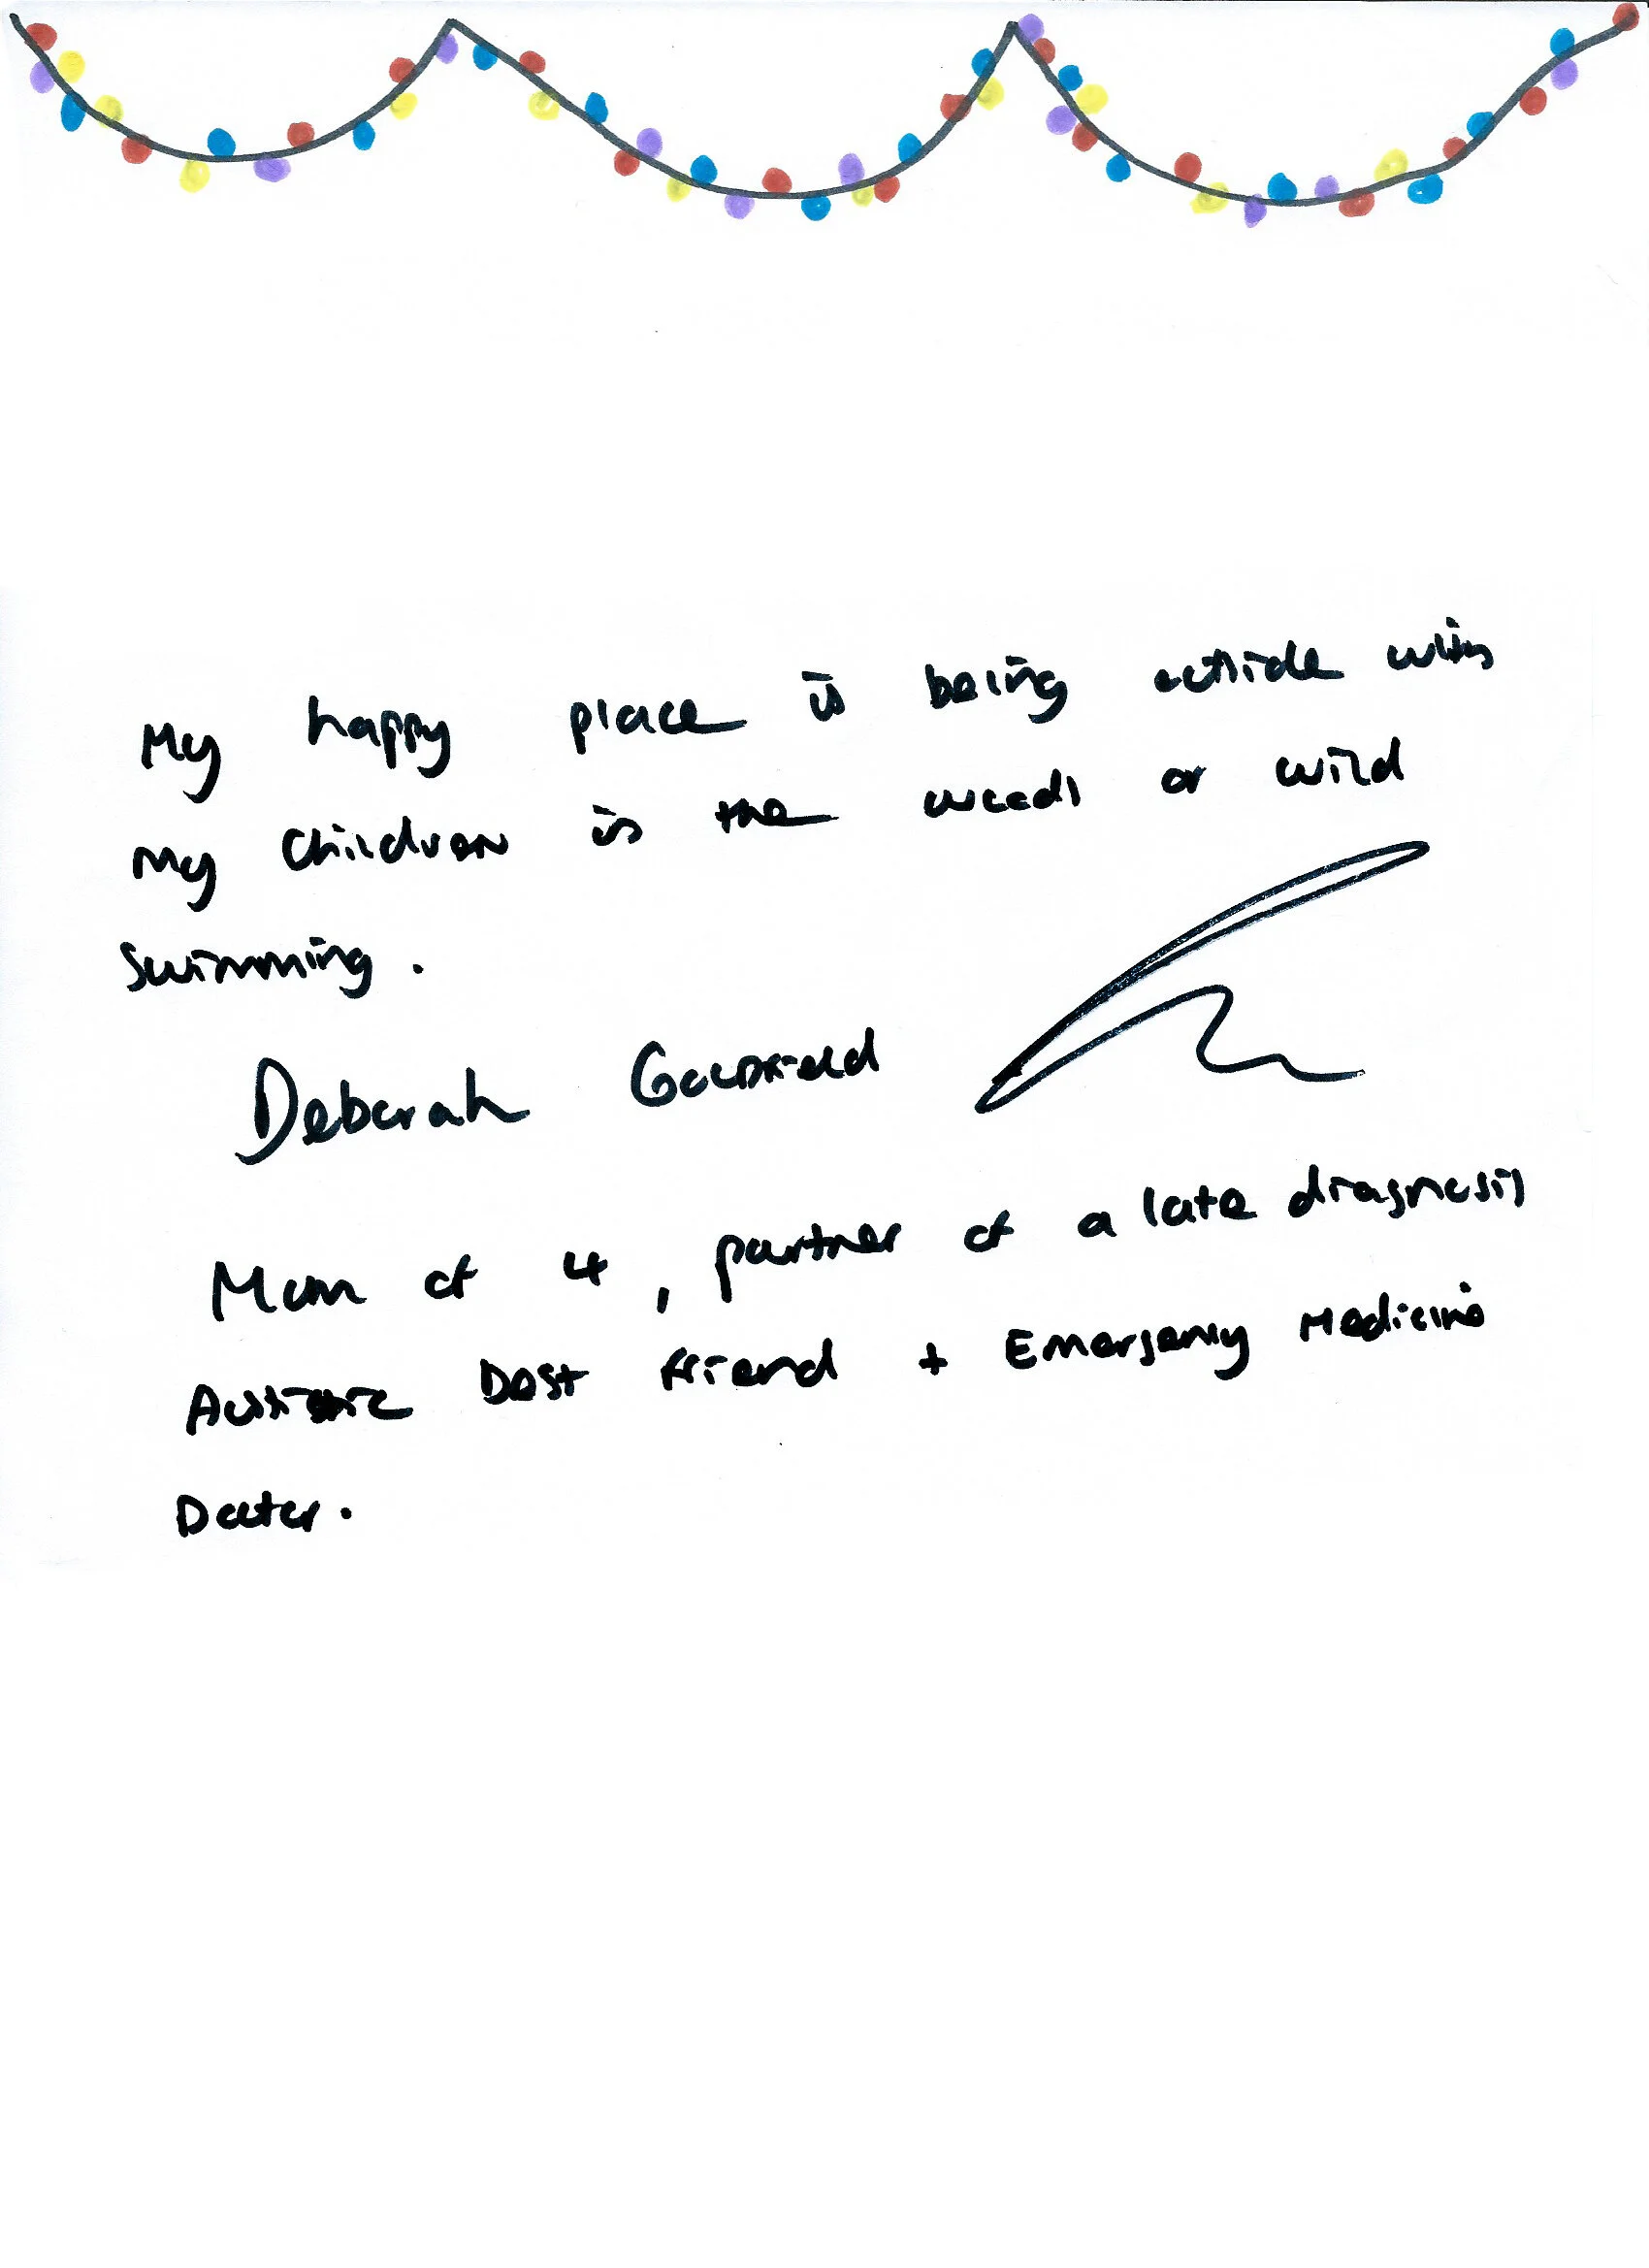 My happy place is being outside with
my children in the woods or wild
swimming.
Deborah
Mum of 4, partner of a late diagnosis
Autistic best friend + Emergency Medicine
Doctor.